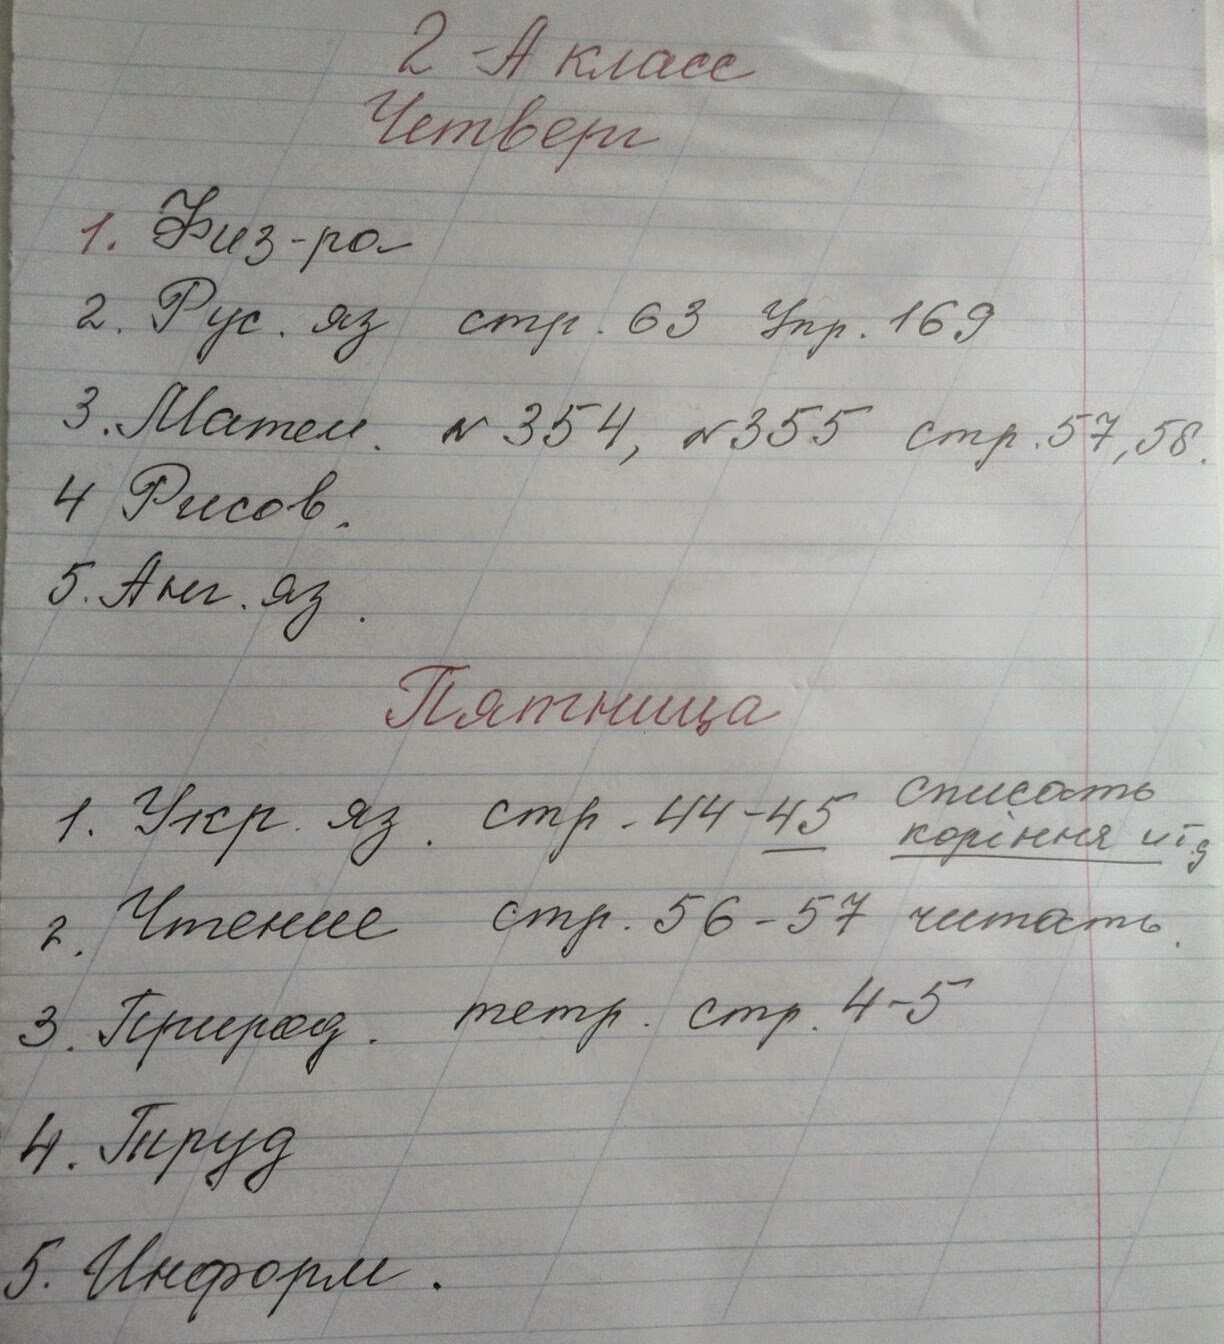 2-А класс
Четверг
1. Физ-ра
2. Рус. яз стр. 63 Упр. 169
3. Матем. № 354, № 355 стр. 57, 58.
4 Рисов.
5. Анг. яз.
Пятница
1. Укр. яз. стр. 44-45 списать
коріння и т.д
2. Чтение стр. 56-57 читать.
3. Природ. тетр. стр. 4-5
4. Труд
5. Информ.